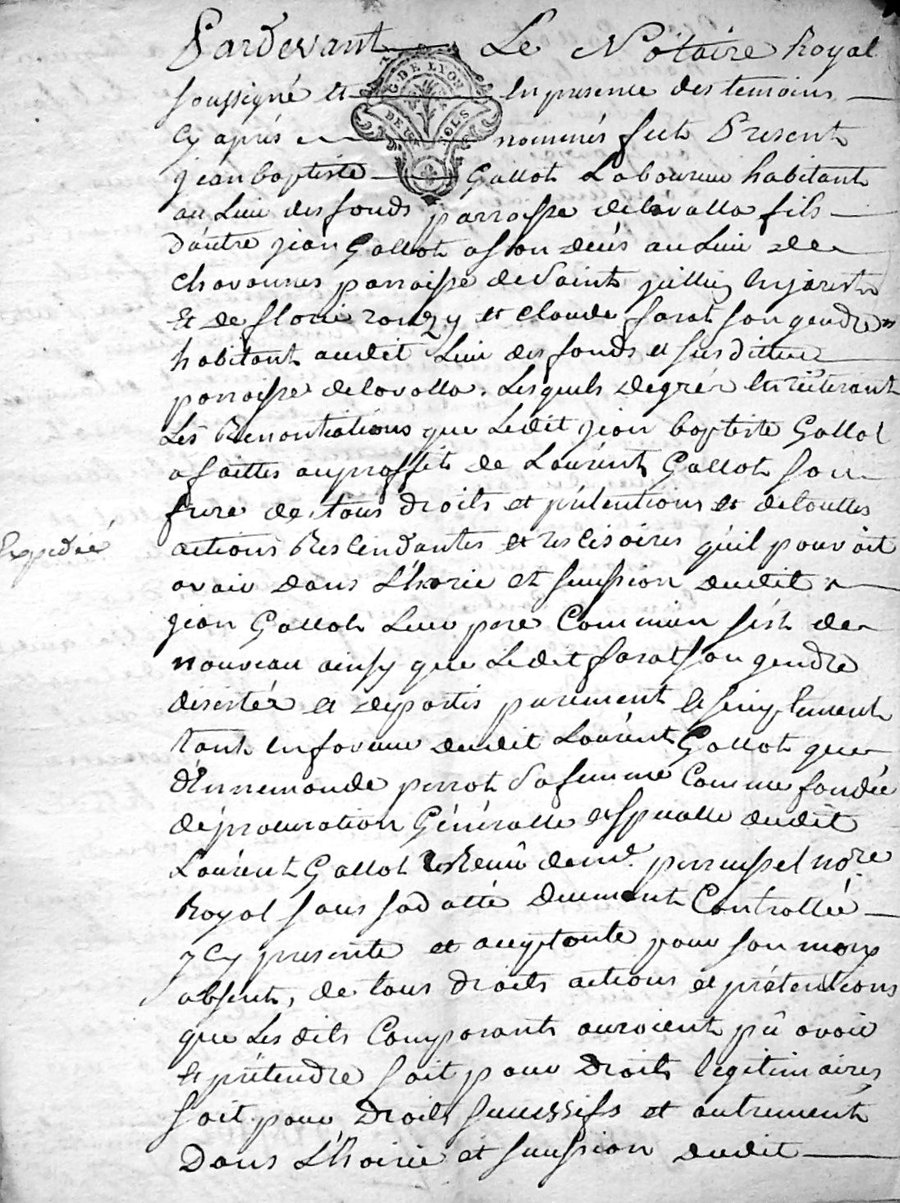 Pardevant Le Nótaire Royal
soussigné et En presence des temoins
Cy aprés nommés fut Present
jean baptiste Gallot Laboureur habitant
au Lieu des fonds parroisse delavalla fils
d'autre jean Gallot asson deces au Lieu de
chavannes parroisse de Saint jullien En jarest
Et de florie et claude farat son gendre
habitant audit Lieu des fonds et susditte
parroisse delavalla. Lesquels degrés En réïterant
Les Renontiations que Ledit jean baptiste Gallot
a faittes auproffit de Laurent Gallot son
frere de tous droits et prétentions et de touttes
actions Rescindantes et rescisoires qu'il pouvoit
avoir dans L'hoirie et sucession dudit
jean Gallot Leur pere Commun s'est de
nouveau ainsy que Ledit farat son gendre
désisté et départis purement et simplement
tant En faveur dudit Laurent Gallot que
d'Ennemonde perrot Sa femme Comme fondée
de procuration Généralle et spécialle dudit
Laurent Gallot Reçuë de me. perrussel nore
Royal sous sa datte duement Controllée
ycy presente et aceptante pour son mary
absent, de tous droits actions et prétentions
que Lesdits Comparants auroient pû avoir
et prétendre soit pour droits legitimaires
soit pour Droits sucessifs et autrement
Dans L'hoirie et sucession dudit
Expediée
G. DE LYON
SOLS